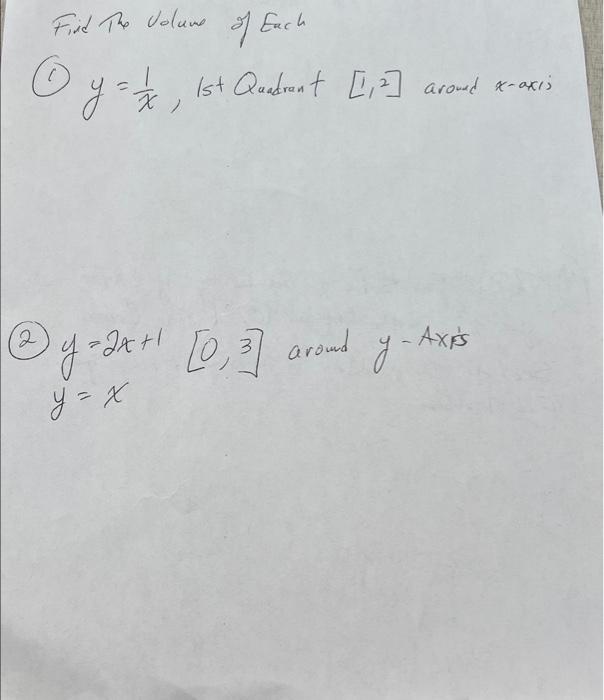 Find The Volume of Each
① y = 1/x, 1st Quadrant [1,2] around x-axis
② y = 2x+1 [0,3] around y-Axis
y = x